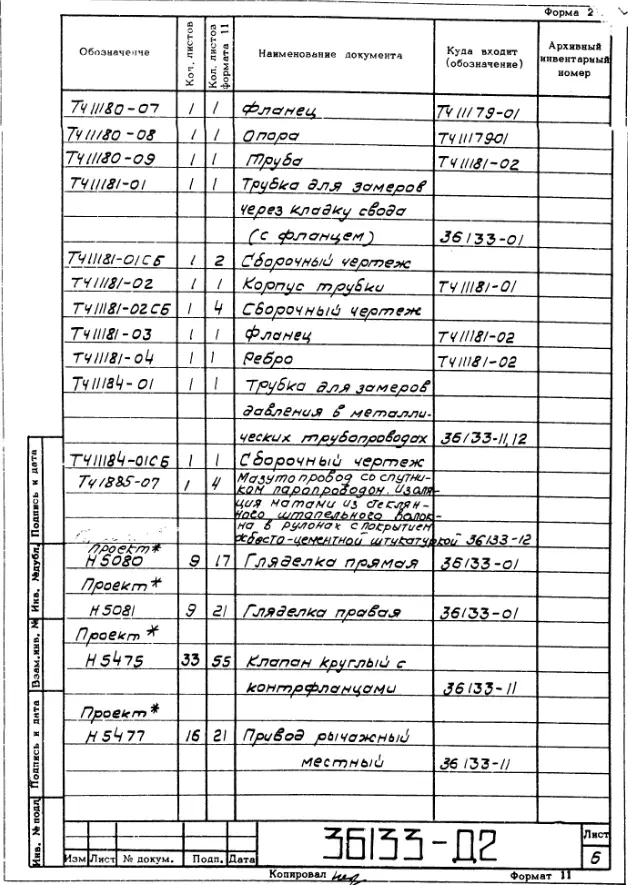 Форма 2
Обозначение Кол. листов Кол. листов формата 11 Наименование документа Куда входит (обозначение) Архивный инвентарный номер
ТЧ11180-07 1 1 Фланец ТЧ11179-01
ТЧ11180-08 1 1 Опора ТЧ1117901
ТЧ11180-09 1 1 Труба ТЧ11181-02
ТЧ11181-01 1 1 Трубка для замеров
через кладку свода
(с фланцем) 36133-01
ТЧ11181-01СБ 1 2 Сборочный чертеж
ТЧ11181-02 1 1 Корпус трубки ТЧ11181-01
ТЧ11181-02СБ 1 4 Сборочный чертеж
ТЧ11181-03 1 1 Фланец ТЧ11181-02
ТЧ11181-04 1 1 Ребро ТЧ11181-02
ТЧ11184-01 1 1 Трубка для замеров
давления в металли-
ческих трубопроводах 36133-11,12
ТЧ11184-01СБ 1 1 Сборочный чертеж
ТЧ1885-07 1 4 Мазутопровод со спутни-
ком паропроводом. Изоля-
ция матами из стеклян-
ного штапельного волок-
на в рулонах с покрытием
асбесто-цементной штукатуркой 36133-12
Проект*
Н5080 9 17 Гляделка прямая 36133-01
Проект*
Н5081 9 21 Гляделка правая 36133-01
Проект*
Н5475 33 55 Клапан круглый с
контрфланцами 36133-11
Проект*
Н5477 16 21 Привод рычажный
местный 36133-11
Инв. № подл. Подпись и дата Взам.инв. № Инв. №дубл. Подпись и дата
36133-Д2
Лист
6
Изм Лист № докум. Подп. Дата
Копировал Формат 11